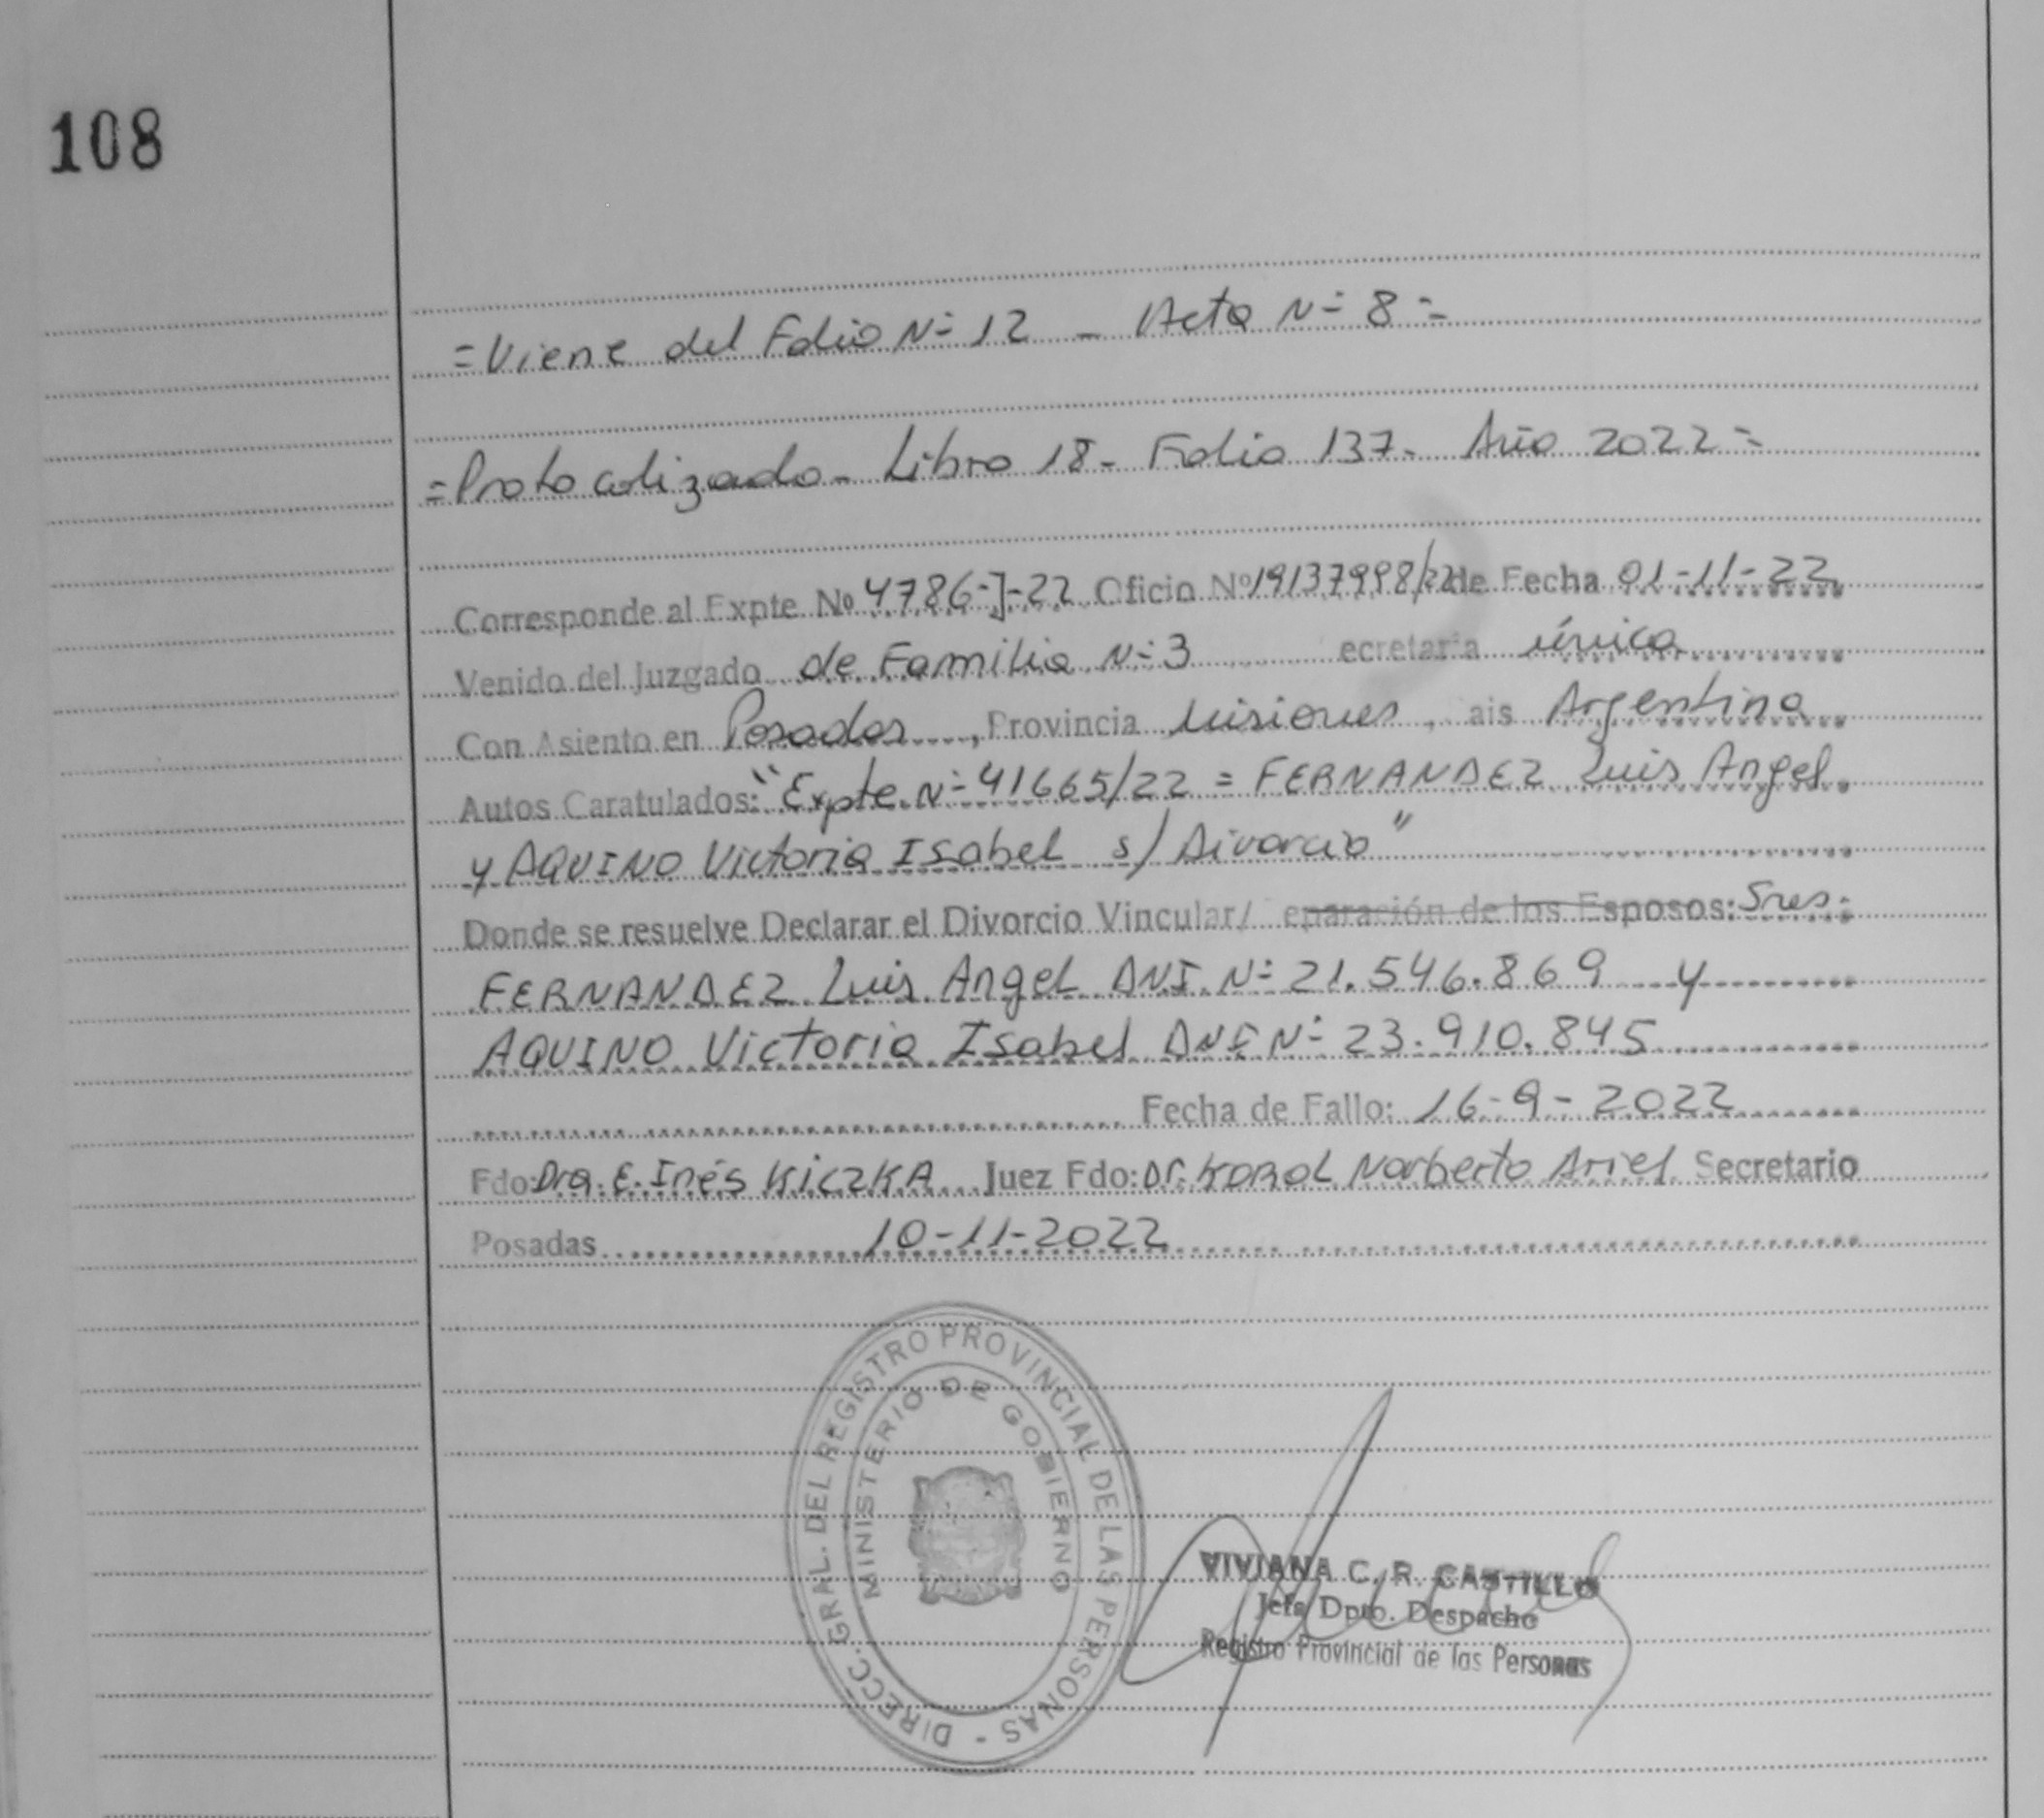 108
=Viene del Folio N° 12 - Acta N° 8=
=Protocolizado- Libro 18- Folio 137- Año 2022=
Corresponde al Expte Nº 4786-J-22 Oficio Nº 19137998/22 de Fecha 01-11-22
Venido del Juzgado de Familia N° 3 ecretaria única
Con Asiento en Posadas, Provincia Misiones, ais Argentina
Autos Caratulados: "Expte. N° 41665/22 = FERNANDEZ Luis Angel
y AQUINO Victoria Isabel s/ Divorcio"
Donde se resuelve Declarar el Divorcio Vincular/ eparación de los Esposos: Sres:
FERNANDEZ Luis Angel DNI. N° 21.546.869 y
AQUINO Victoria Isabel DNI N° 23.910.845
Fecha de Fallo: 16-9-2022
Fdo: Dra. E. Inés KiczKA Juez Fdo: Dr. KOROL Norberto Ariel Secretario
Posadas 10-11-2022
DIRECC. GRAL. DEL REGISTRO PROVINCIAL DE LAS PERSONAS -
MINISTERIO DE GOBIERNO
VIVIANA C. R. CASTILLO
Jefa Dpto. Despacho
Registro Provincial de las Personas